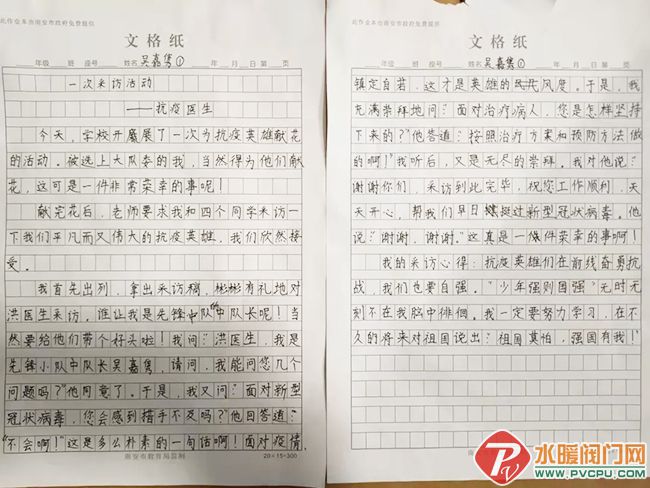 此作业本由南安市政府免费提供
文格纸
年级 班 座号 姓名 吴嘉隽① 年 月 日第 页
一次采访活动
——抗疫医生
今天，学校开展了一次为抗疫英雄献花
的活动。被选上大队委的我，当然得为他们献
花，这可是一件非常荣幸的事呢！
献完花后，老师要求我和四个同学采访一
下我们平凡而又伟大的抗疫英雄，我们欣然接
受。
我首先出列，拿出采访稿，彬彬有礼地对
洪医生采访，谁让我是先锋中队的中队长呢！当
然要给他们带个好头啦！我问：“洪医生，我是
先锋小队中队长吴嘉隽，请问，我能问您几个
问题吗？”他同意了。于是，我又问：“面对新型
冠状病毒，您会感到措手不及吗？”他回答道：
“不会啊！”这是多么朴素的一句话啊！面对疫情，
南安市教育局监制
20×15=300
此作业本由南安市政府免费提供
文格纸
年级 班 座号 姓名 吴嘉隽① 年 月 日第 页
镇定自若，这才是英雄的风度。于是，我
充满崇拜地问：“面对治疗病人，您是怎样坚持
下来的？”他答道：“按照治疗方案和预防方法做
的啊！”我听后，又是无尽的崇拜。我对他说：“
谢谢你们，采访到此完毕，祝您工作顺利，天
天开心，帮我们早日挺过新型冠状病毒。”他
说：“谢谢，谢谢。”这真是一件荣幸的事啊！
我的采访心得：抗疫英雄们在前线奋勇抗
战，我们也要自强。“少年强则国强”无时无
刻不在我脑中徘徊。我一定要努力学习，在不
久的将来对祖国说出：“祖国莫怕，强国有我！”
水暖阀门网
WWW.PVCPU.COM